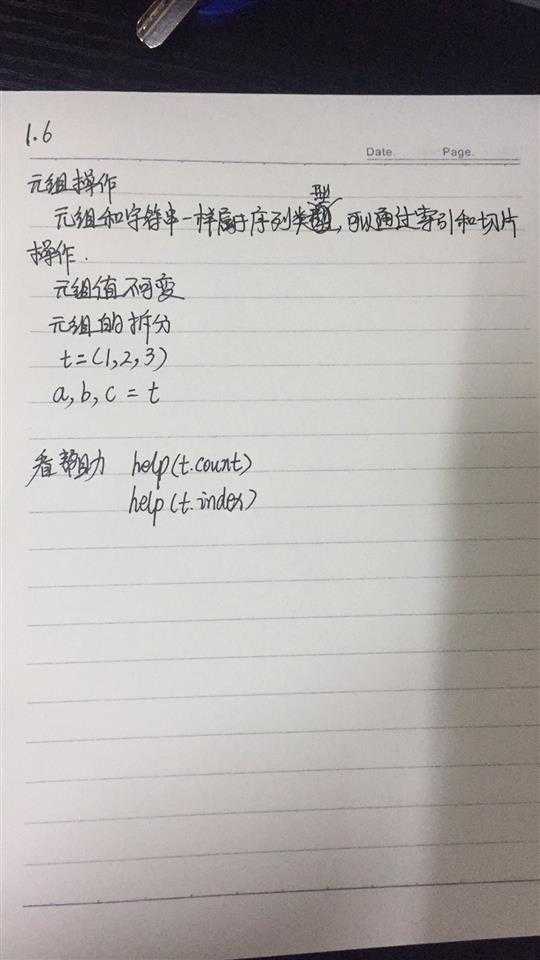 1.6
Date. Page.
元组操作
元组和字符串一样属于序列类型,可以通过索引和切片
操作.
元组值不可变
元组的拆分
t=(1,2,3)
a,b,c = t
看帮助 help(t.count)
help(t.index)